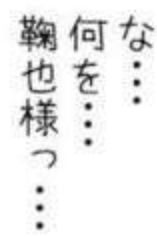 な…
何を…
鞠也様っ…